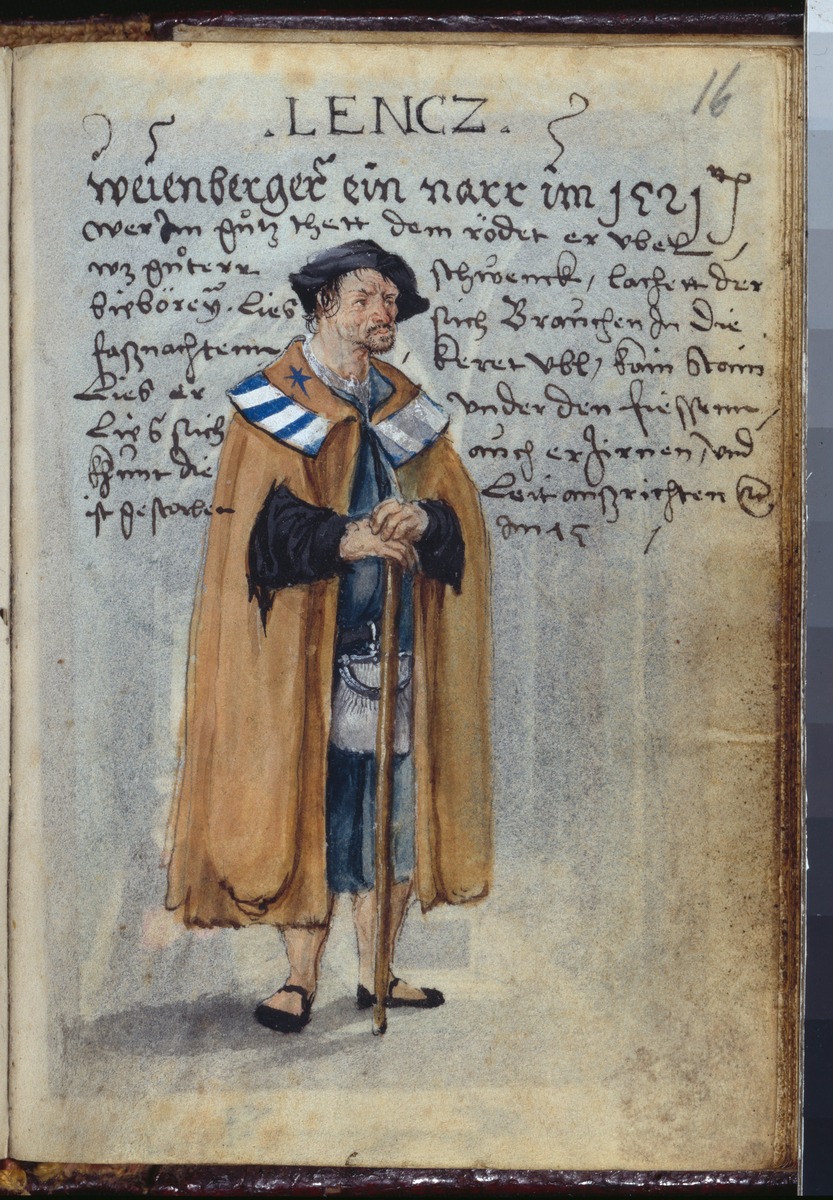 16
. LENCZ .
weienberger ein narr im 1521
wer im gůtz thett dem rödet er vbel
wz gůterr schwenck, lachett der
lies sich Brauchen In die
fasznachtenn keret vbl, kain Stain
Lies er vnder den fiessenn,
Lies sich auch erzirnen, vnd
kunt die Leit auszrichten
ist gestorben im 15